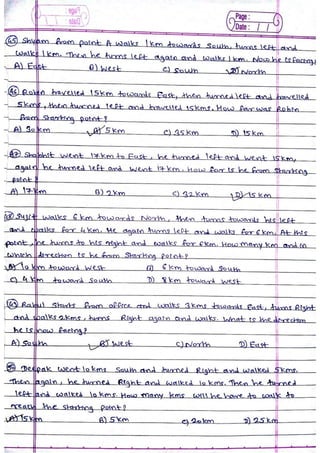 Page :
Date : / /
45) Shyam from point A walks 1km towards South, turns left and
walks 1km. Then he turns left again and walks 1km. Now he is facing?
A) East B) West C) South D) North
46) Robin travelled 15km towards East, then turned left and travelled
5kms, then turned left and travelled 15kms. How far was Robin
from starting point?
A) 30km B) 5km C) 35km D) 15km
47) Shobhit went 17km to East, he turned left and went 15km,
again he turned left and went 17km. How far is he from starting
point?
A) 17km B) 2km C) 32km D) 15km
Sujit walks 6km towards North, then turns towards his left
and walks for 4km. He again turns left and walks for 6km. At this
point, he turns to his right and walks for 6km. How many km and in
which direction is he from starting point?
B) 10km toward West A) 6km toward South
C) 4km toward South D) 8km toward West
49) Rahul starts from office and walks 3kms towards East, turns Right
and walks 2kms, turns Right again and walks. What is the direction
he is now facing?
A) South B) West C) North D) East
50) Deepak went 10kms South and turned Right and walked 5kms.
Then again, he turned Right and walked 10kms. Then he turned
left and walked 10kms. How many kms will he have to walk to
reach the starting point?
A) 15km B) 5km C) 20km D) 25km